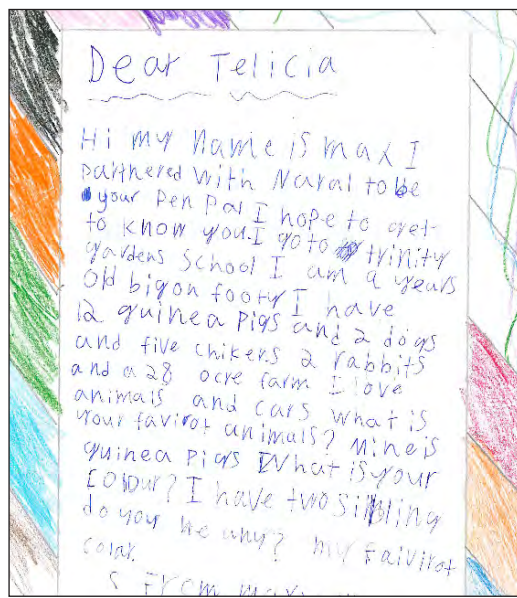 Dear Telicia
Hi my name is max I
parthered with Naral to be
your Pen Pal I hope to get
to know you. I go to trinity
gardens school I am 9 years
old big on footy I have
12 guinea Pigs and 2 dogs
and five chikers 2 rabbits
and a 28 ocre farm I love
animals and cars what is
your favirot animals? Mine is
guinea Pigs What is your
colour? I have two Sibling
do you he any? my faivirot
colar.
From max